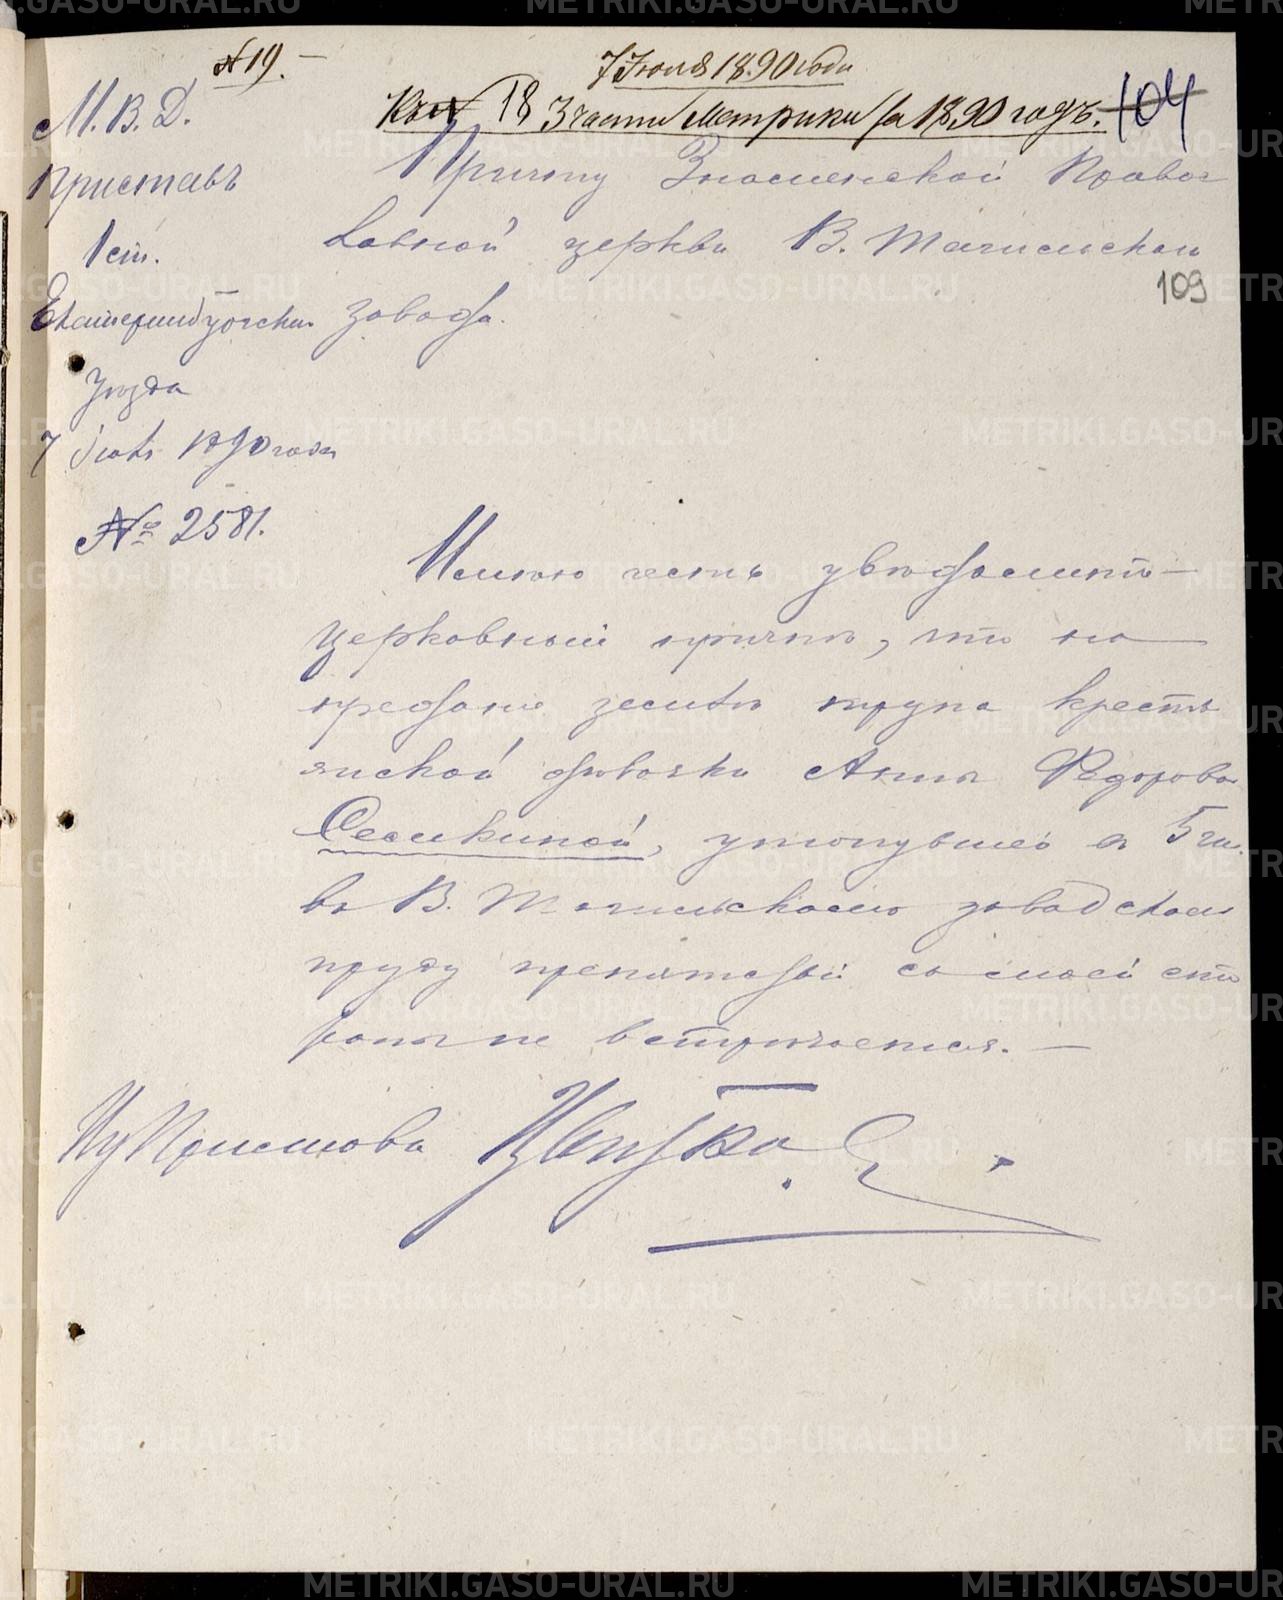 № 19. —
7 Июля 1890 года
К № 18 3 части Метрики за 1890 годъ.
104
М. В. Д.
Приставъ
1 ст.
Екатеринбургскаго
Уѣзда
7 Июля 1890 года
№ 2581.
Причту Знаменской Правос
лавной церкви В. Тагильскаго
109
завода.
Имѣю честь увѣдомить
церковный причтъ, что на
преданіе землѣ трупа кресть
янской дѣвочки Анны Федоровой
Семкиной, утонувшей 5 ч.
въ В. Тагильскомъ заводскомъ
пруду препятствій со моей сто
роны не встрѣчается. —
Иу Пристава
METRIKI.GASO-URAL.RU